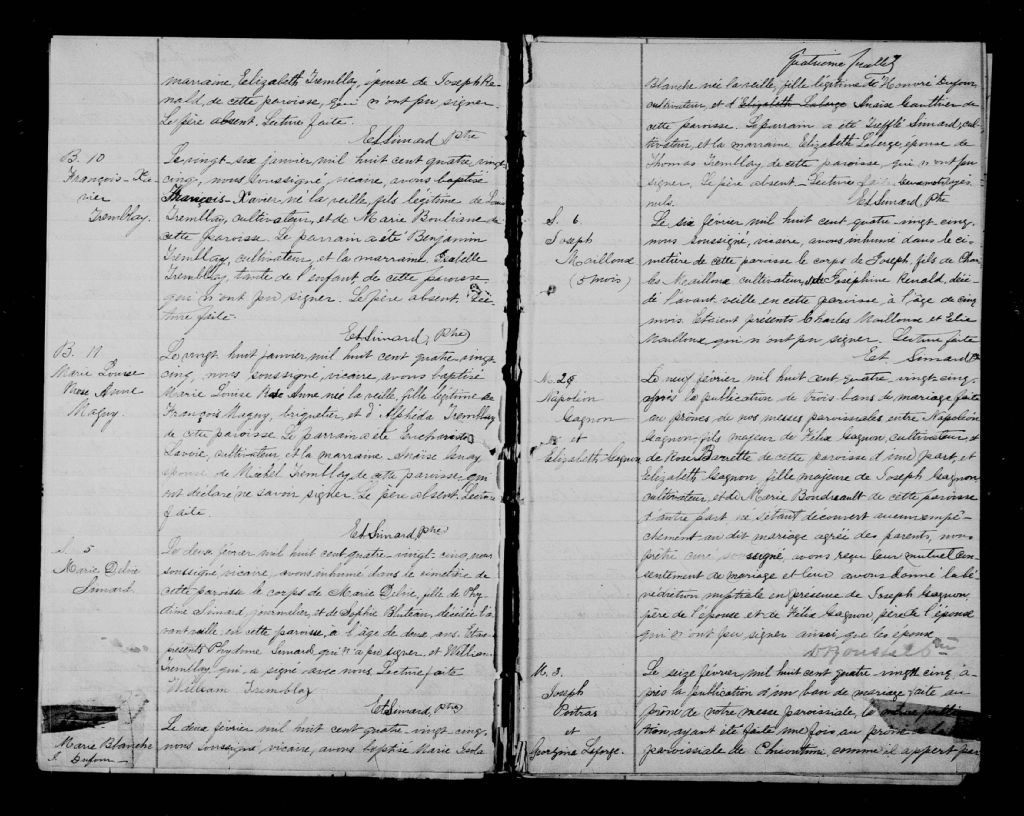 marraine, Elizabeth Tremblay, épouse de Joseph Re-
nald, de cette paroisse, qui n'ont pu signer
Le père absent. Lecture faite.
Et Simard Ptre
B. 10
François-Xa-
vier
Tremblay.
Le vingt-six janvier mil huit cent quatre-vingt
cinq, nous soussigné, vicaire, avons baptisé
François-Xavier, né la veille, fils légitime de Louis
Tremblay, cultivateur, et de Marie Bouliane de
cette paroisse. Le parrain a été Benjamin
Tremblay, cultivateur, et la marraine Isabelle
Tremblay, tante de l'enfant, de cette paroisse,
qui n'ont pu signer. Le père absent. Lec-
ture faite.
Et Simard, Ptre
B. 11
Marie Louise
Rose Anne
Maguy.
Le vingt huit janvier mil huit cent quatre-vingt
cinq, nous soussigné, vicaire, avons baptisé
Marie Louise Rose Anne née la veille, fille légitime de
François Maguy, briquetier, et d'Alphéda Tremblay
de cette paroisse. Le parrain a été
Lavoie, cultivateur et la marraine Anaïse
épouse de Michel Tremblay de cette paroisse, qui
ont déclaré ne savoir signer. Le père absent. Lecture
faite.
Et Simard, Ptre
S. 5
Marie Delvie
Simard.
Le deux février mil huit cent quatre-vingt-cinq, nous
soussigné vicaire, avons inhumé dans le cimetière de
cette paroisse le corps de Marie Delvie, fille de Phy-
dime Simard, journalier, et de Sophie Bluteau, décédée l'a-
vant veille en cette paroisse, à l'âge de deux ans. Etaient
présents Phydime Simard, qui n'a pu signer, et William
Tremblay qui a signé avec nous. Lecture faite
William Tremblay
Et Simard, Ptre
Marie Blanche
Dufour
Le deux février mil huit cent quatre-vingt cinq,
nous soussigné, vicaire, avons baptisé Marie
Quatrième feuillet
Blanche née la veille, fille légitime de Honoré Dufour
cultivateur, et d'Elizabeth Laberge Anaïse Gauthier de
cette paroisse. Le parrain a été Trefflé Simard, cul-
tivateur, et la marraine Elizabeth Laberge épouse de
Thomas Tremblay de cette paroisse, qui n'ont pu
signer. Le père absent. Lecture faite. deux mots rayés
nuls.
Et Simard, Ptre
S. 6
Joseph
Mailloux
(5 mois)
Le six février mil huit cent quatre-vingt cinq,
nous soussigné, vicaire, avons inhumé dans le ci-
metière de cette paroisse le corps de Joseph, fils de Char-
les Mailloux cultivateur, et de Joséphine Renald, décé-
dé l'avant-veille en cette paroisse à l'âge de cinq
mois. Etaient présents Charles Mailloux et Elie
Mailloux qui n'ont pu signer. Lecture faite
Et. Simard Ptre
M. 2
Napoléon
Gagnon
et
Elizabeth Gagnon
Le neuf février mil huit cent quatre-vingt-cinq,
après la publication de trois bans de mariage faite
au prônes de nos messes paroissiales entre Napoléon
Gagnon fils majeur de Félix Gagnon, cultivateur, et
de Rose Barette de cette paroisse d'une part, et
Elizabeth Gagnon, fille majeure de Joseph Gagnon
cultivateur, et de Marie Boudreault de cette paroisse
d'autre part, ne s'étant découvert aucun empê-
chement au dit mariage agréé des parents, nous
prêtre curé soussigné, avons reçu leur mutuel con-
sentement de mariage et leur avons donné la bé-
nédiction nuptiale en présence de Joseph Gagnon,
père de l'épouse et de Félix Gagnon, père de l'époux
qui n'ont pu signer ainsi que les époux
M. 3.
Joseph
Poitras
et
Georgina Laforge.
Le seize février, mil huit cent quatre-vingt cinq, a-
près la publication d'un ban de mariage faite au
prône de notre messe paroissiale, la même publica-
tion, ayant été faite une fois au prône de la
paroissiale de Chicoutimi comme il appert par